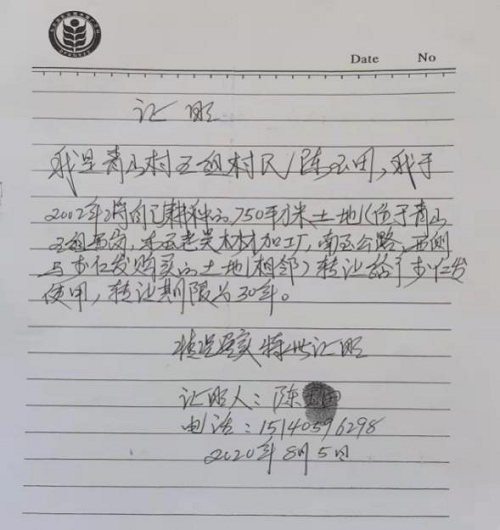 Date No
证明
我是青山村五组村民陈玉田，我于
2002年2月自己耕种的750平方米土地（位于青山
五组西岗，东至老吴木材加工厂，南至公路，西侧
与步仁发购买的土地相邻）转让给了步仁发
使用，转让期限为30年。
情况属实 特此证明
证明人：陈
电话：15140596298
2020年8月5日